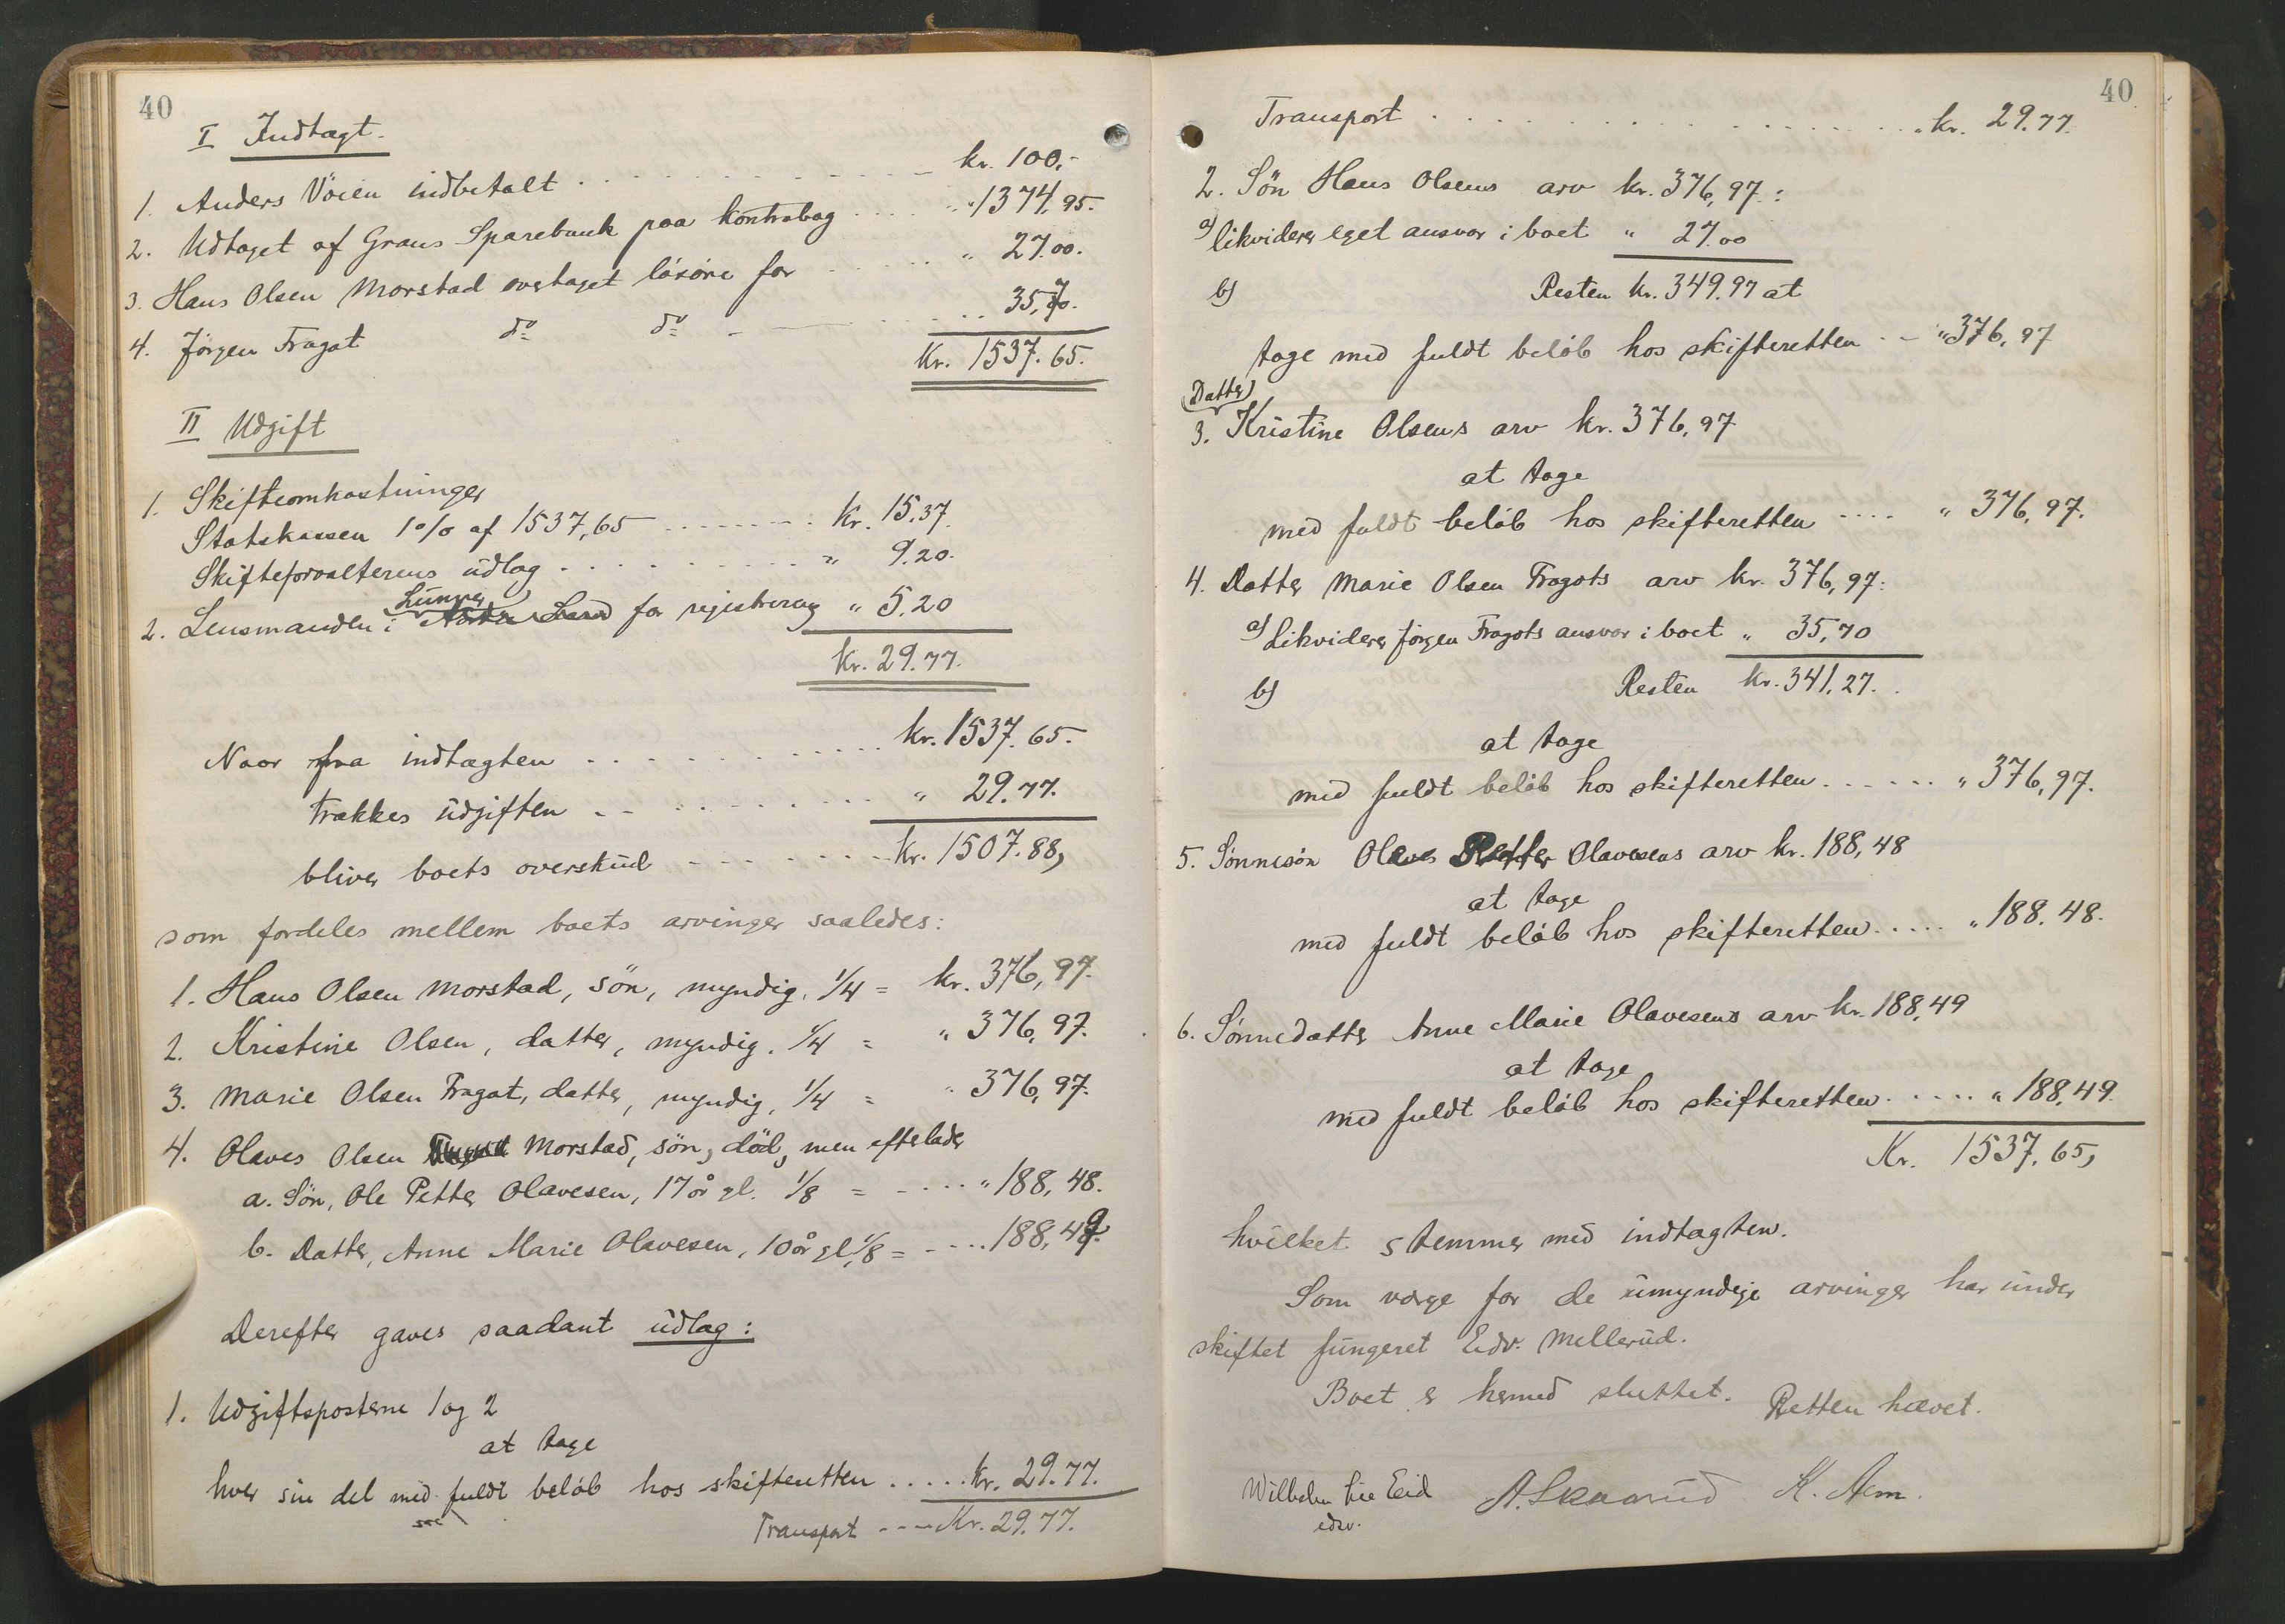 40
I Indtægt.
1. Anders Vöien indbetalt . . . . kr. 100,-
2. Udtaget af Grans Sparebank paa kontrabog . . . . " 1374,95.
3. Hans Olsen Morstad overtaget lösöre for . . . . " 27.00.
4. Jörgen Fragat do do - . . . . 35,70.
Kr. 1537.65.
II Udgift
1. Skifteomkostninger
Statskassen 1% af 1537,65 . . . . Kr. 15.37.
Skifteforvalterens udlæg . . . . " 9.20.
Lunner
2. Lensmanden i for registrering " 5.20
Kr. 29.77.
Naar fra indtægten . . . . kr. 1537.65.
trækkes udgiften . . . . " 29.77.
bliver boets overskud . . . . kr. 1507.88,
som fordeles mellem boets arvinger saaledes:
1. Hans Olsen Morstad, sön, myndig, 1/4 = kr. 376,97.
2. Kristine Olsen, datter, myndig, 1/4 = " 376,97.
3. Marie Olsen Fragat, datter, myndig, 1/4 = " 376,97.
4. Olaves Olsen Morstad, sön, död, men efterlader
a. Sön, Ole Petter Olavesen, 17 år gl. 1/8 = . . . . " 188,48.
b. Datter, Anne Marie Olavesen, 10 år gl, 1/8 = . . . . 188,49.
Derefter gaves saadant udlæg:
1. Udgiftsposterne 1 og 2
at tage
hver sin del med fuldt belöb hos skifteretten . . . . . Kr. 29.77.
Transport - - - Kr. 29.77.
40
Transport . . . . kr. 29.77.
2. Sön Hans Olsens arv kr. 376,97:
a) likviderer eget ansvar i boet " 27.00
b) Resten kr. 349.97 at
tage med fuldt belöb hos skifteretten . . " 376,97
Datter
3. Kristine Olsens arv kr. 376,97
at tage
med fuldt belöb hos skifteretten . . . . " 376,97.
4. Datter Marie Olsen Fragots arv kr. 376,97:
a) Likviderer Jörgen Fragots ansvar i boet " 35,70
b) Resten kr. 341,27.
at tage
med fuldt belöb hos skifteretten . . . . . . " 376,97.
5. Sönnesön Petter Olavesens arv kr. 188,48
at tage
med fuldt belöb hos skifteretten . . . . . " 188.48.
6. Sönnedatter Anne Marie Olavesens arv kr. 188,49
at tage
med fuldt belöb hos skifteretten . . . . . " 188,49.
Kr. 1537,65,
hvilket stemmer med indtægten.
Som værge for de umyndige arvinger har under
skiftet fungeret Edv. Mellerud.
Boet er hermed sluttet. Retten hævet.
Wilhelm Eid A. Skaarud K.
edsv.